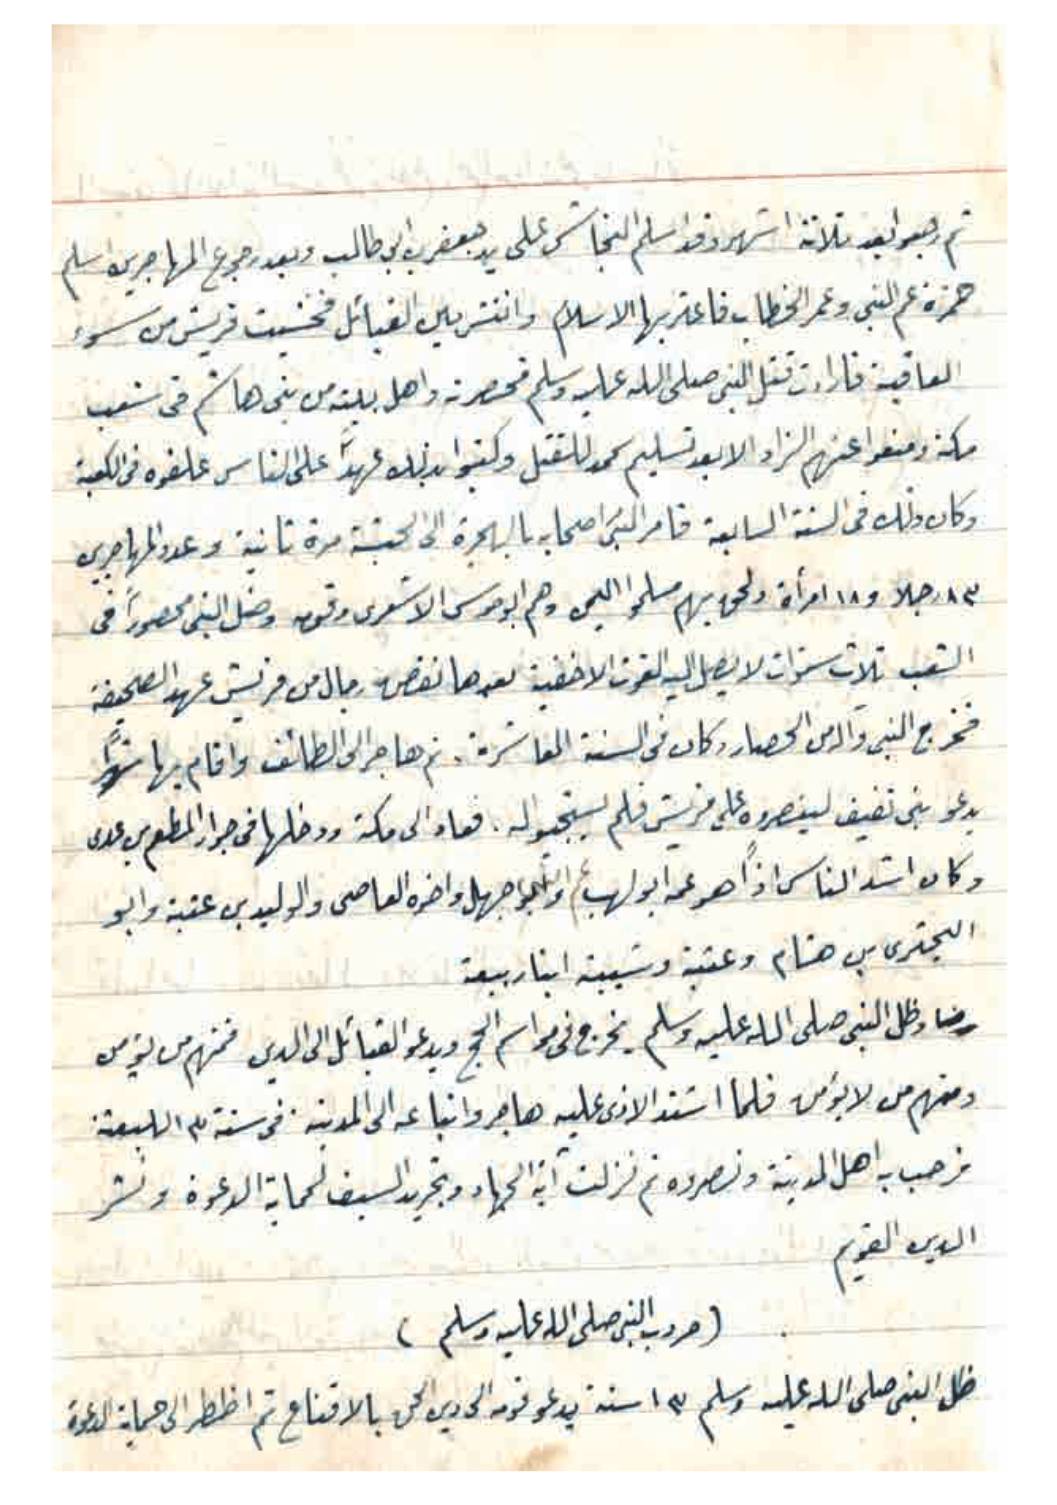 ثم رجعوا بعد ثلاثة اشهر وقد اسلم النجاشي على يد جعفر بن ابي طالب وبعد رجوع المهاجرين اسلم
حمزة عم النبي وعمر الخطاب فاعتز بها الاسلام وانتشر بين القبائل فخشيت قريش من سوء
العاقبة فارادت قتل النبي صلى الله عليه وسلم فحصرته واهل بيته من بني هاشم في شعب
مكة ومنعوا عنهم الزاد الا بعد تسليم محمد للقتل وكتبوا بذلك عهداً على الناس علقوه في الكعبة
وكان ذلك في السنة السابعة فامر النبي اصحابه بالهجرة الى الحبشة مرة ثانية وعدد المهاجرين
٨٣ رجلا و ١٨ امرأة ولحق بهم مسلموا اليمن وهم ابو موسى الاشعري وقومه وضل النبي محصوراً في
الشعب ثلاث سنوات لا يصل اليه القوت الا خفية بعدها نقض رجال من قريش عهد الصحيفة
فخرج النبي وآله من الحصار وكان في السنة العاشرة . ثم هاجر الى الطائف واقام بها شهراً
يدعو بني ثقيف لينصروه على قريش فلم يستجيبوا له . فعاد الى مكة ودخلها في جوار المطعم بن عدي
وكان اشد الناس اذاً هو عمه ابو لهب وابو جهل واخوه العاصي والوليد بن عقبة وابو
البختري بن هشام وعتبة وشيبة ابنا ربيعة
وظل النبي صلى الله عليه وسلم يخرج في مواسم الحج ويدعو القبائل الى الدين فمنهم من يؤمن
ومنهم من لا يؤمن فلما اشتد الاذى عليه هاجر واتباعه الى المدينة في سنة ١٣ للبعثة
فرحب به اهل المدينة ونصروه ثم نزلت آية الجهاد وتجريد السيف لحماية الدعوة ونشر
الدين القويم
( حروب النبي صلى الله عليه وسلم )
ظل النبي صلى الله عليه وسلم ١٣ سنة يدعو قومه الى دين الحق بالاقناع ثم اضطر الى حماية الدعوة